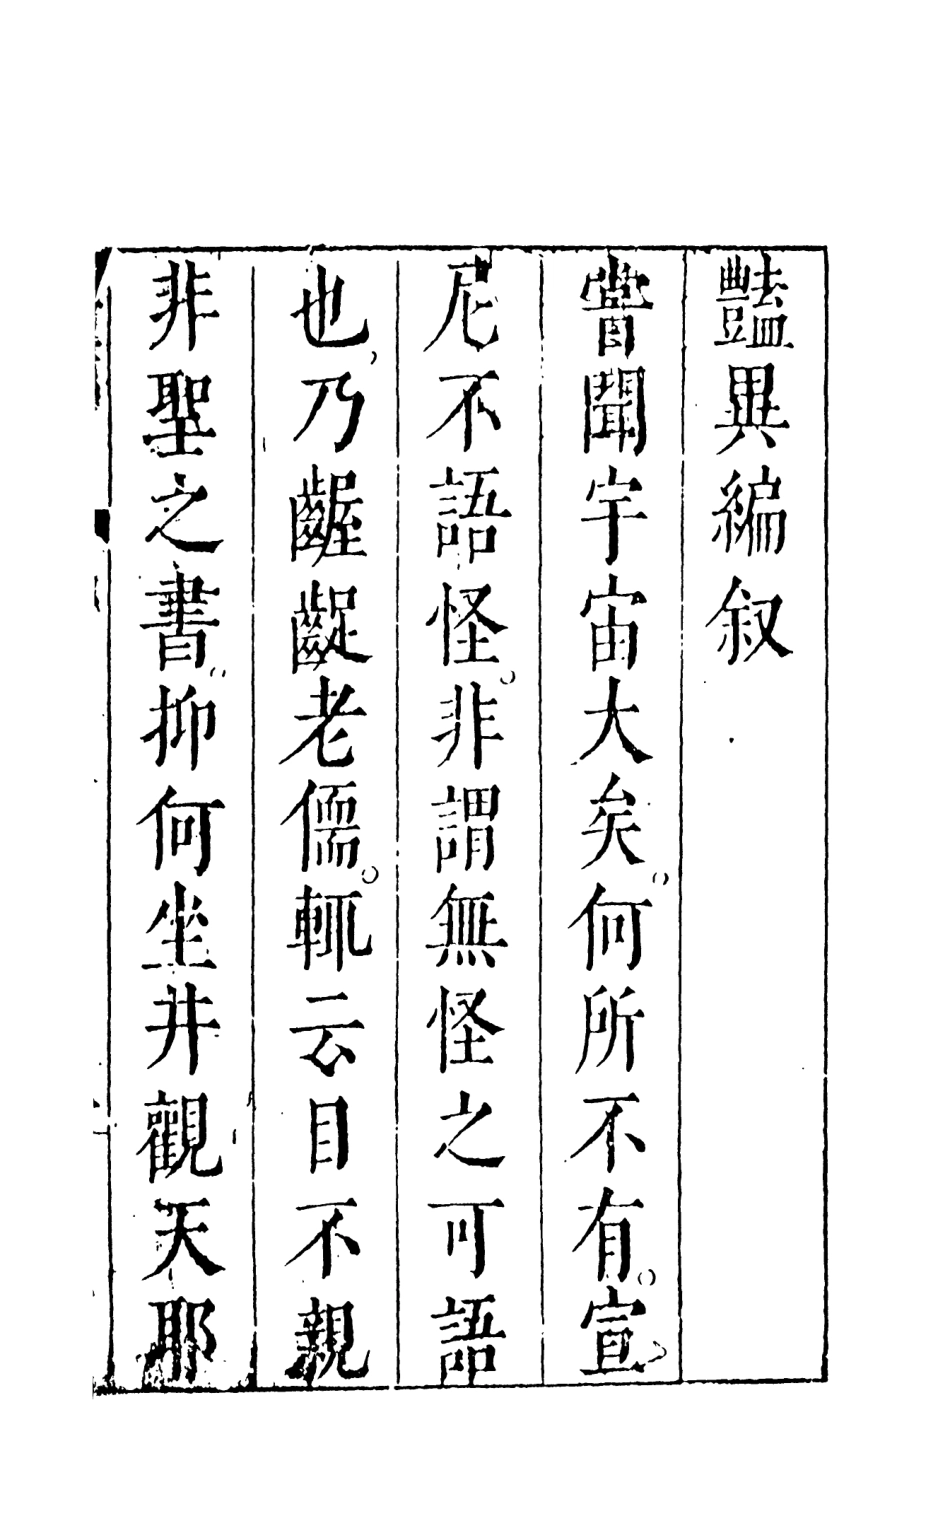 豔異編叙
嘗聞宇宙大矣。何所不有。宣
尼不語怪。非謂無怪之可語
也，乃齷齪老儒。輒云目不親
非聖之書。抑何坐井觀天耶